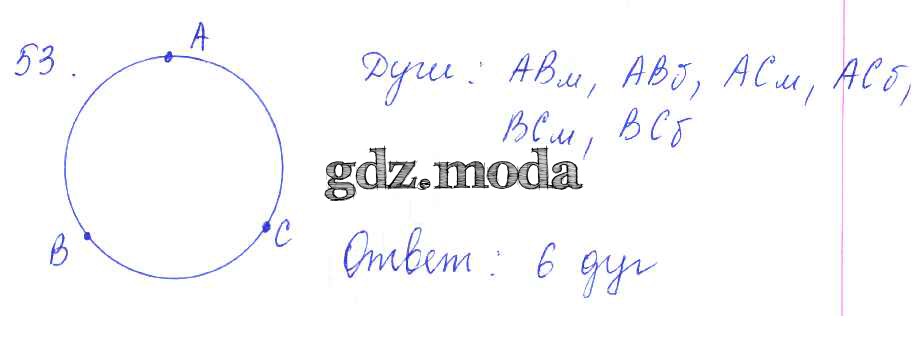 53.
A
B
C
Дуги: ABм, ABб, ACм, ACб,
BCм, BCб
gdz.moda
Ответ: 6 дуг